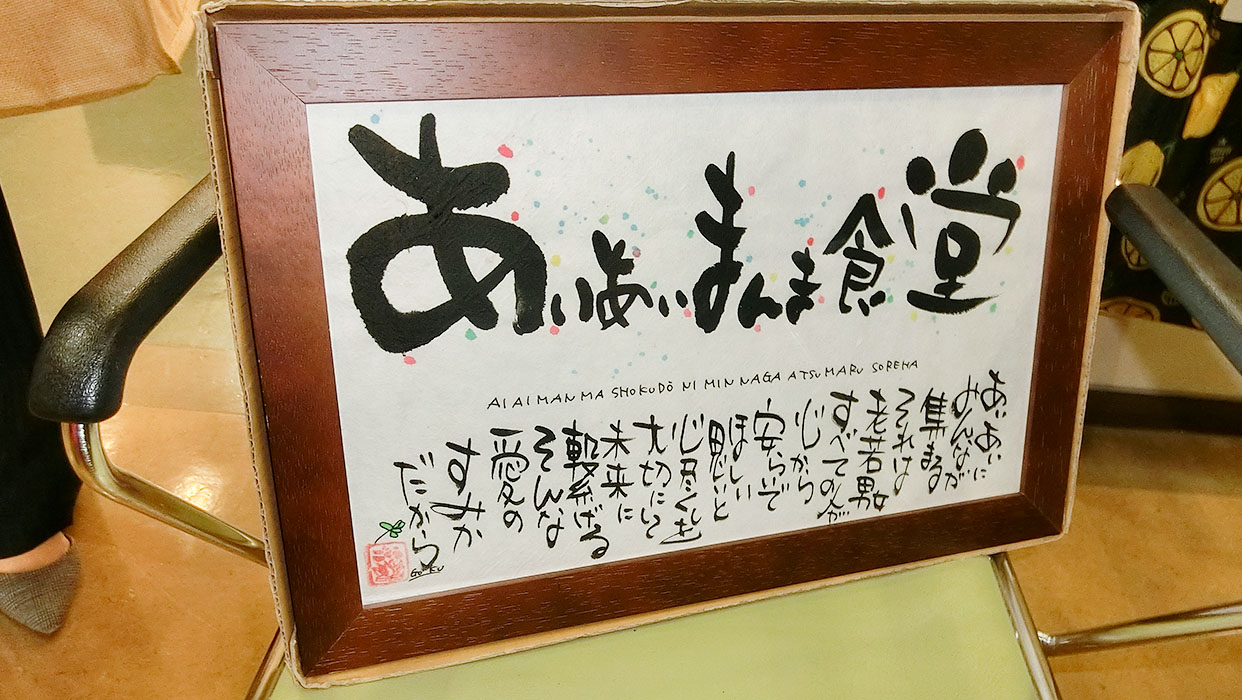 あいあいまんま食堂
AI AI MAN MA SHOKUDŌ NI MIN NAGA ATSUMARU SOREHA
あいあいに
みんなが
集まる
それは
老若男女
すべての人が
心から
安らいで
ほしい
思いと
心尽くしを
大切にして
未来に
繋げる
そんな
愛の
すみか
だから
GOKU